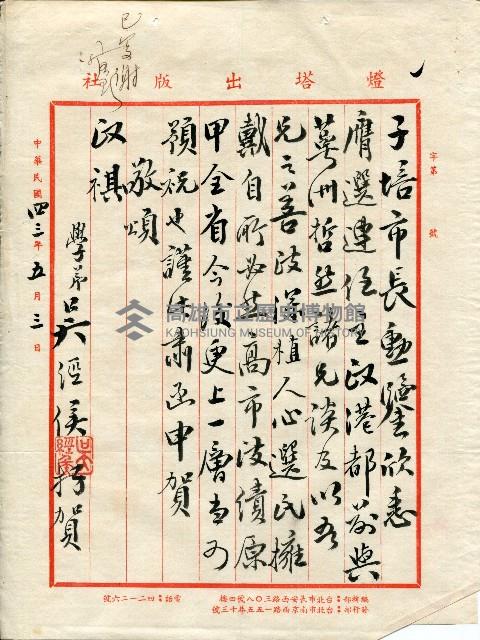 燈塔出版社
已呈謝
字第 號
子培市長勳鑒欣悉
膺選連任重政港都前與
萼洲哲並諸兄談及以吾
兄之善政深植人心選民擁
戴自所必其高市政績原
甲全省今後更上一層當可
預祝也謹此肅函申賀
敬頌
政祺
學弟吳經侯拜賀
中華民國四三年五月三日
高雄市立歷史博物館
KAOHSIUNG MUSEUM OF HISTORY
編輯部：台北市長安西路三〇八號四樓 電話：四二一二六號
發行部：台北市南京西路一五五巷十三號